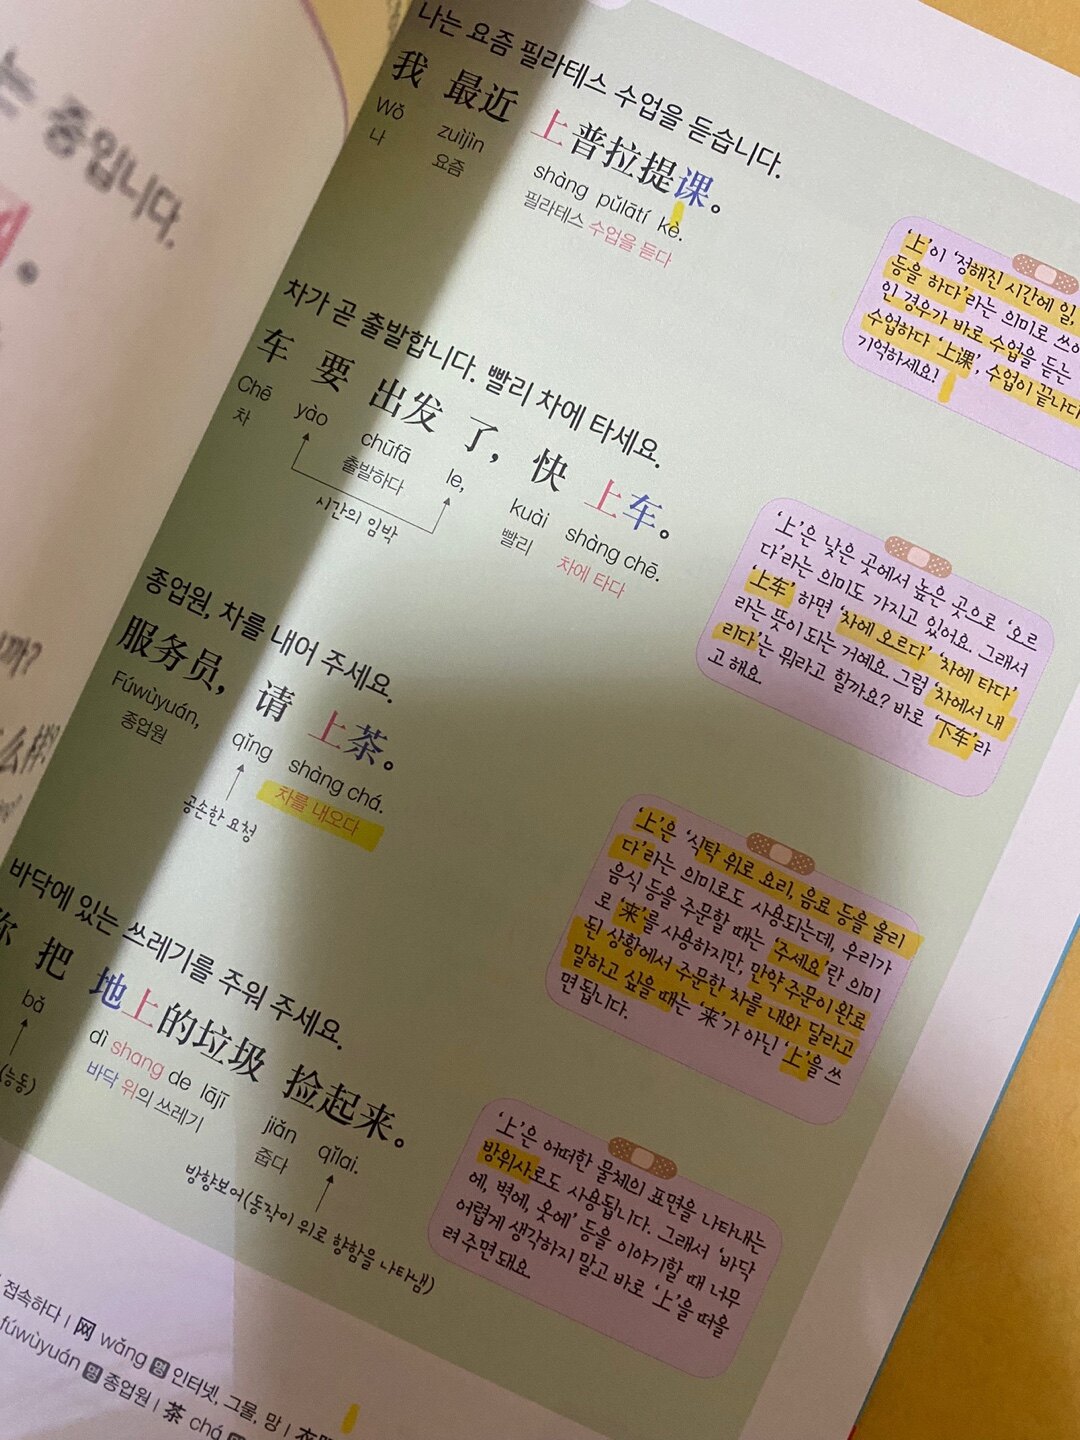 는 중입니다.
나는 요즘 필라테스 수업을 듣습니다.
我 最近 上普拉提课。
Wǒ zuìjìn shàng pǔlātí kè.
나 요즘 필라테스 수업을 듣다
‘上’이 ‘정해진 시간에 일,
등을 하다’라는 의미로 쓰이
인 경우가 바로 수업을 듣는
수업하다 ‘上课’, 수업이 끝나다
기억하세요!
차가 곧 출발합니다. 빨리 차에 타세요.
车 要 出发 了, 快 上车。
Chē yào chūfā le, kuài shàng chē.
차 출발하다 빨리 차에 타다
시간의 임박
‘上’은 낮은 곳에서 높은 곳으로 ‘오르
다’라는 의미도 가지고 있어요. 그래서
‘上车’ 하면 ‘차에 오르다’ ‘차에 타다’
라는 뜻이 되는 거예요. 그럼 ‘차에서 내
리다’는 뭐라고 할까요? 바로 ‘下车’라
고 해요.
종업원, 차를 내어 주세요.
服务员, 请 上茶。
Fúwùyuán, qǐng shàng chá.
종업원 차를 내오다
공손한 요청
‘上’은 ‘식탁 위로 요리, 음료 등을 올리
다’라는 의미로도 사용되는데, 우리가
음식 등을 주문할 때는 ‘주세요’란 의미
로 ‘来’를 사용하지만, 만약 주문이 완료
된 상황에서 주문한 차를 내와 달라고
말하고 싶을 때는 ‘来’가 아닌 ‘上’을 쓰
면 됩니다.
바닥에 있는 쓰레기를 주워 주세요.
你 把 地上的垃圾 捡起来。
bǎ dì shang de lājī jiǎn qǐlai.
(능동) 바닥 위의 쓰레기 줍다
방향보어(동작이 위로 향함을 나타냄)
‘上’은 어떠한 물체의 표면을 나타내는
방위사로도 사용됩니다. 그래서 ‘바닥
에, 벽에, 옷에’ 등을 이야기할 때 너무
어렵게 생각하지 말고 바로 ‘上’을 떠올
려 주면 돼요.
까?
么样?
접속하다 | 网 wǎng 명 인터넷, 그물, 망 |
fúwùyuán 명 종업원 | 茶 chá